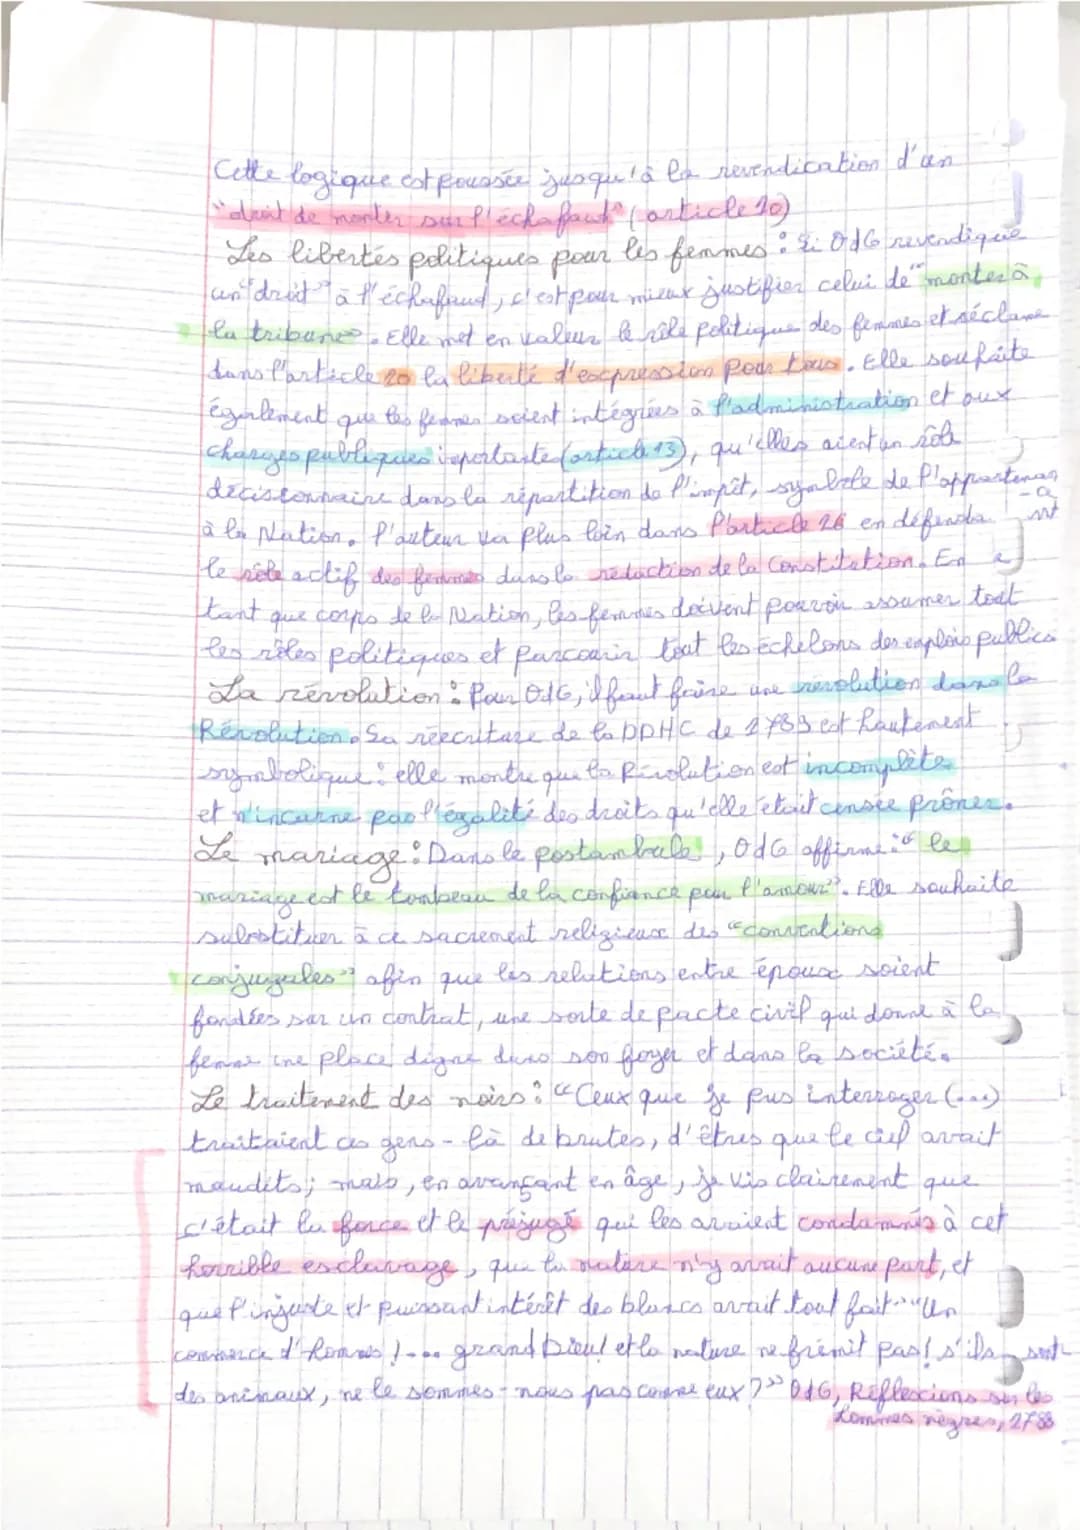 Cette logique est poussée jusqu'à la revendication d'un
"droit de monter sur l'échafaud" (article 10)
Les libertés politiques pour les femmes : Si OdG revendique
un "droit" à l'échafaud, c'est pour mieux justifier celui de "monter à
la tribune". Elle met en valeur le rôle politique des femmes et réclame
dans l'article 10 la liberté d'expression pour tous. Elle souhaite
également que les femmes soient intégrées à l'administration et aux
charges publiques importante (article 13), qu'elles aient un rôle
décisionnaire dans la répartition de l'impôt, symbole de l'appartenan
à la Nation. l'auteur va plus loin dans l'article 16 en défenda
le rôle actif des femmes dans la rédaction de la Constitution. En
tant que corps de la Nation, les femmes doivent pouvoir assumer tout
les rôles politiques et parcourir tout les échelons des emplois publics
La révolution : Pour OdG, il faut faire une révolution dans la
Révolution. Sa réécriture de la DDHC de 1789 est hautement
symbolique : elle montre que la Révolution est incomplète
et n'incarne pas l'égalité des droits qu'elle était censée prôner.
Le mariage : Dans le postambule, OdG affirme : "le
mariage est le tombeau de la confiance par l'amour". Elle souhaite
substituer à ce sacrement religieux des "conventions
conjugales" afin que les relations entre époux soient
fondées sur un contrat, une sorte de pacte civil qui donne à la
femme une place digne dans son foyer et dans la société.
Le traitement des noirs : "Ceux que je pus interroger (...)
traitaient ces gens-là de brutes, d'êtres que le ciel avait
maudits ; mais, en avançant en âge, je vis clairement que
c'était la force et le préjugé qui les avaient condamnés à cet
horrible esclavage, que la nature n'y avait aucune part, et
que l'injuste et puissant intérêt des blancs avait tout fait" "Un
commerce d'hommes !... grand Dieu ! et la nature ne frémit pas ! s'ils sont
des animaux, ne le sommes-nous pas comme eux ?" OdG, Réflexions sur les
hommes nègres, 1788